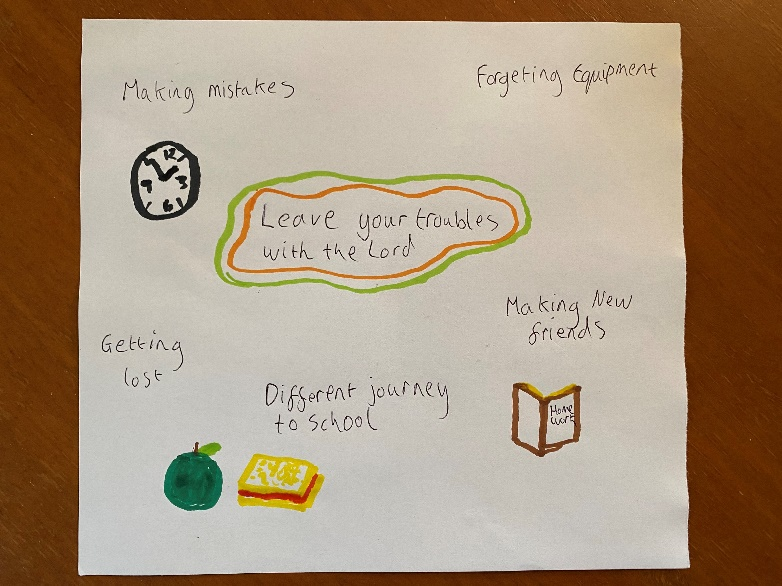 Making mistakes
Forgeting Equipment
12
9 3
6
Leave your troubles
with the Lord
Making New
friends
Getting
lost
Different journey
to School
Home
work